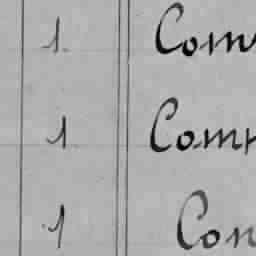 1 Com
1 Com
1 Con